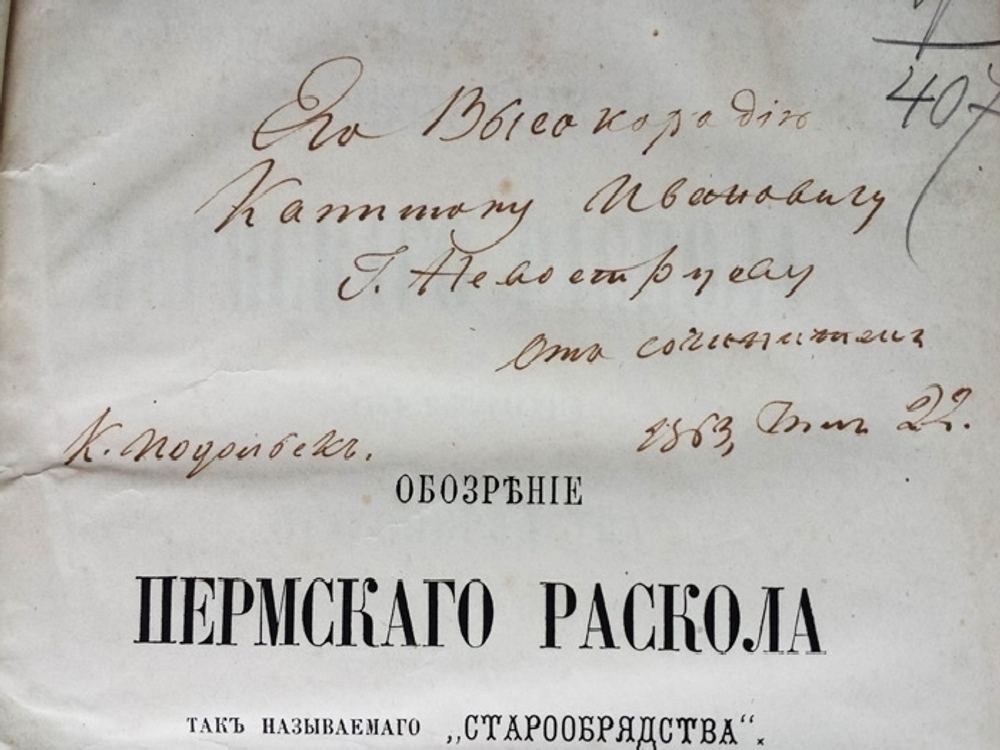 407
Его Высокородію
Капитону Ивановичу
Г. Невоструеву
отъ сочинителя
К. Подольскъ. 1863, Іюля 22.
ОБОЗРѢНІЕ
ПЕРМСКАГО РАСКОЛА
ТАКЪ НАЗЫВАЕМАГО „СТАРООБРЯДСТВА“.